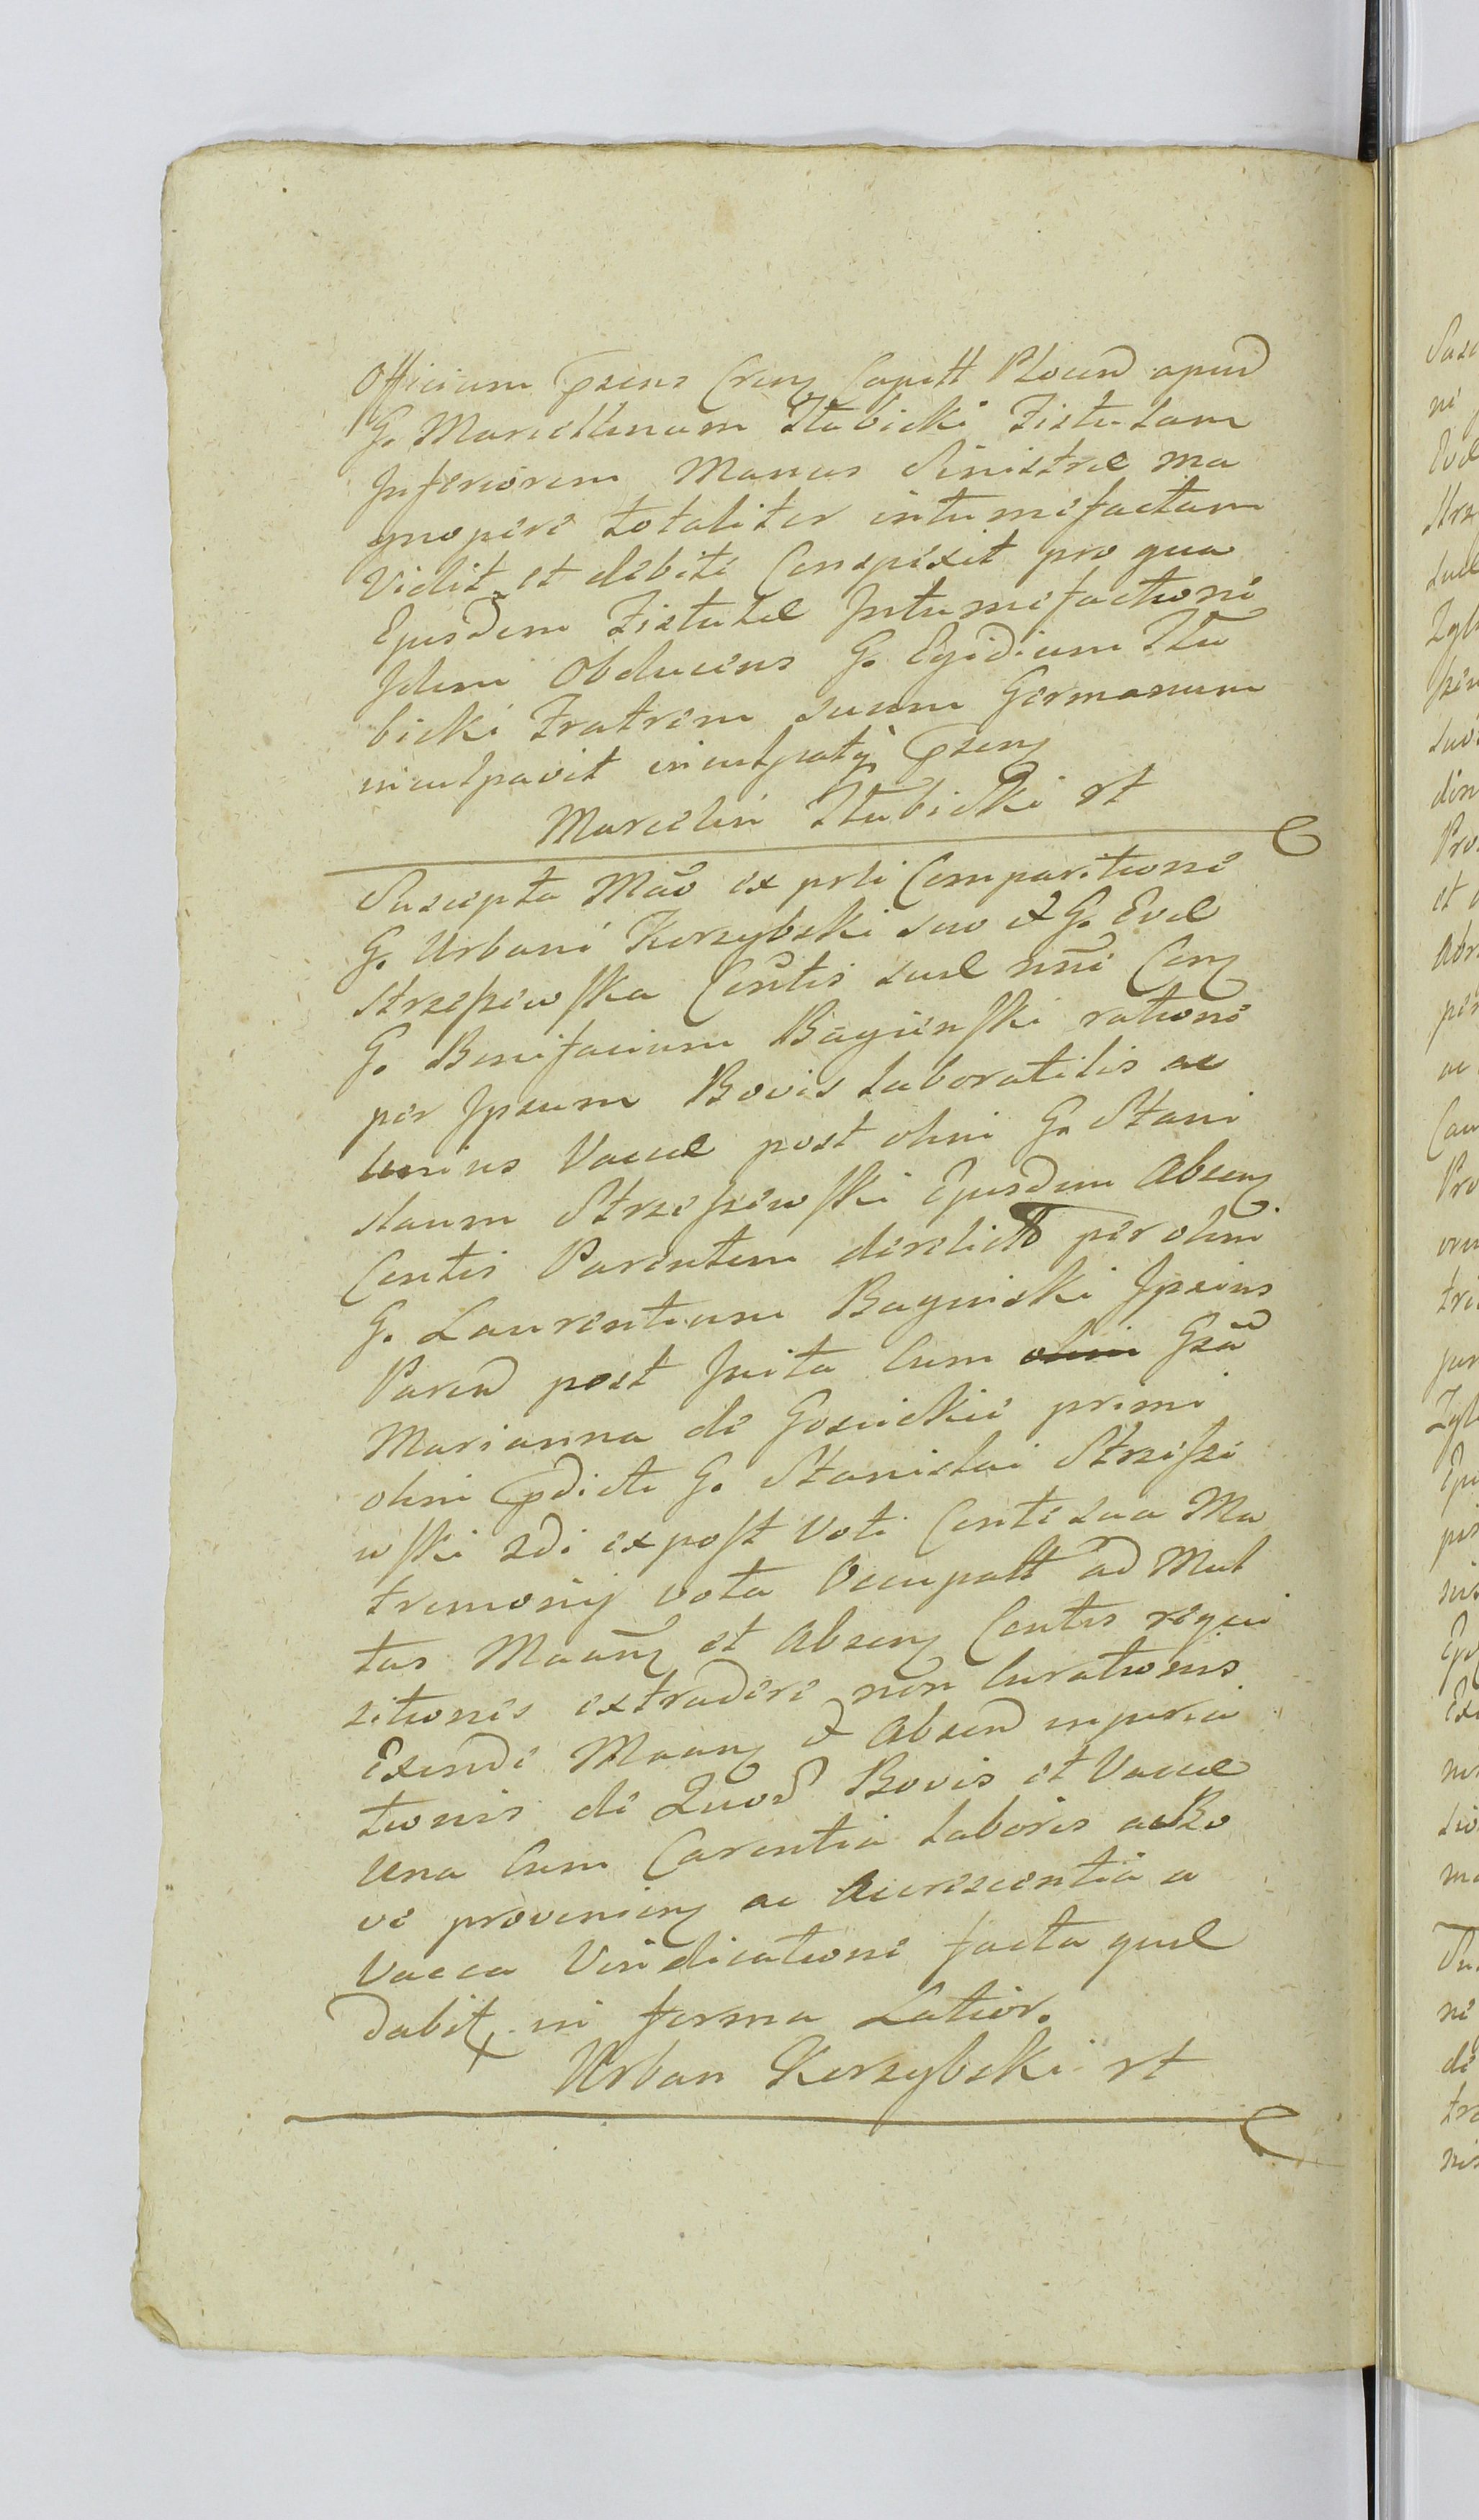 Officium Pzens Cren Capitt Plocen apud
G. Marcellinum Słubicki Fistulam
Inferiorem Manus Sinistræ ma
gnopere totaliter intumefactam
Vidit et debite Conspexit pro qua
Ejusdem Fistulæ Intumefactione
Idem Obducens G. Egidium Słu
bicki Fratrem suum Germanum
inculpavit inculpatq Pzens
Marcelin Słubicki rt
Suscepta Mão ex prti Comparitione
G. Urbani Korzybski suo et G. Evæ
Strzeszewska Contis suæ nni Con
G. Bonifacium Bagieński ratione
per Ipsum Bovis laboratilis ac
unius Vaccæ post olim G. Stani
slaum Strzeszewski Ejusdem Absen
Contis Parentem derelict per olim
G. Laurentium Baginski Ipsius
Paren post Inita Cum olim Gsa
Marianna de Gosickie primi
olim Pdicti G. Stanislai Strzesze
wski 2di expost Voti Conte sua Ma
tremonij vota Occupatt ad Mul
tas Maan et Absen Contis requi
sitiones extradere non Curationis
Exinde Maan et Absen injuria
tionis de Quod Bovis et Vaccæ
Una Cum Carentia laboris a Bo
ve provenien ac Accrescentia a
Vacca Vindicatione facta quæ
dabit in forma Latior.
Urban Korzybski rt